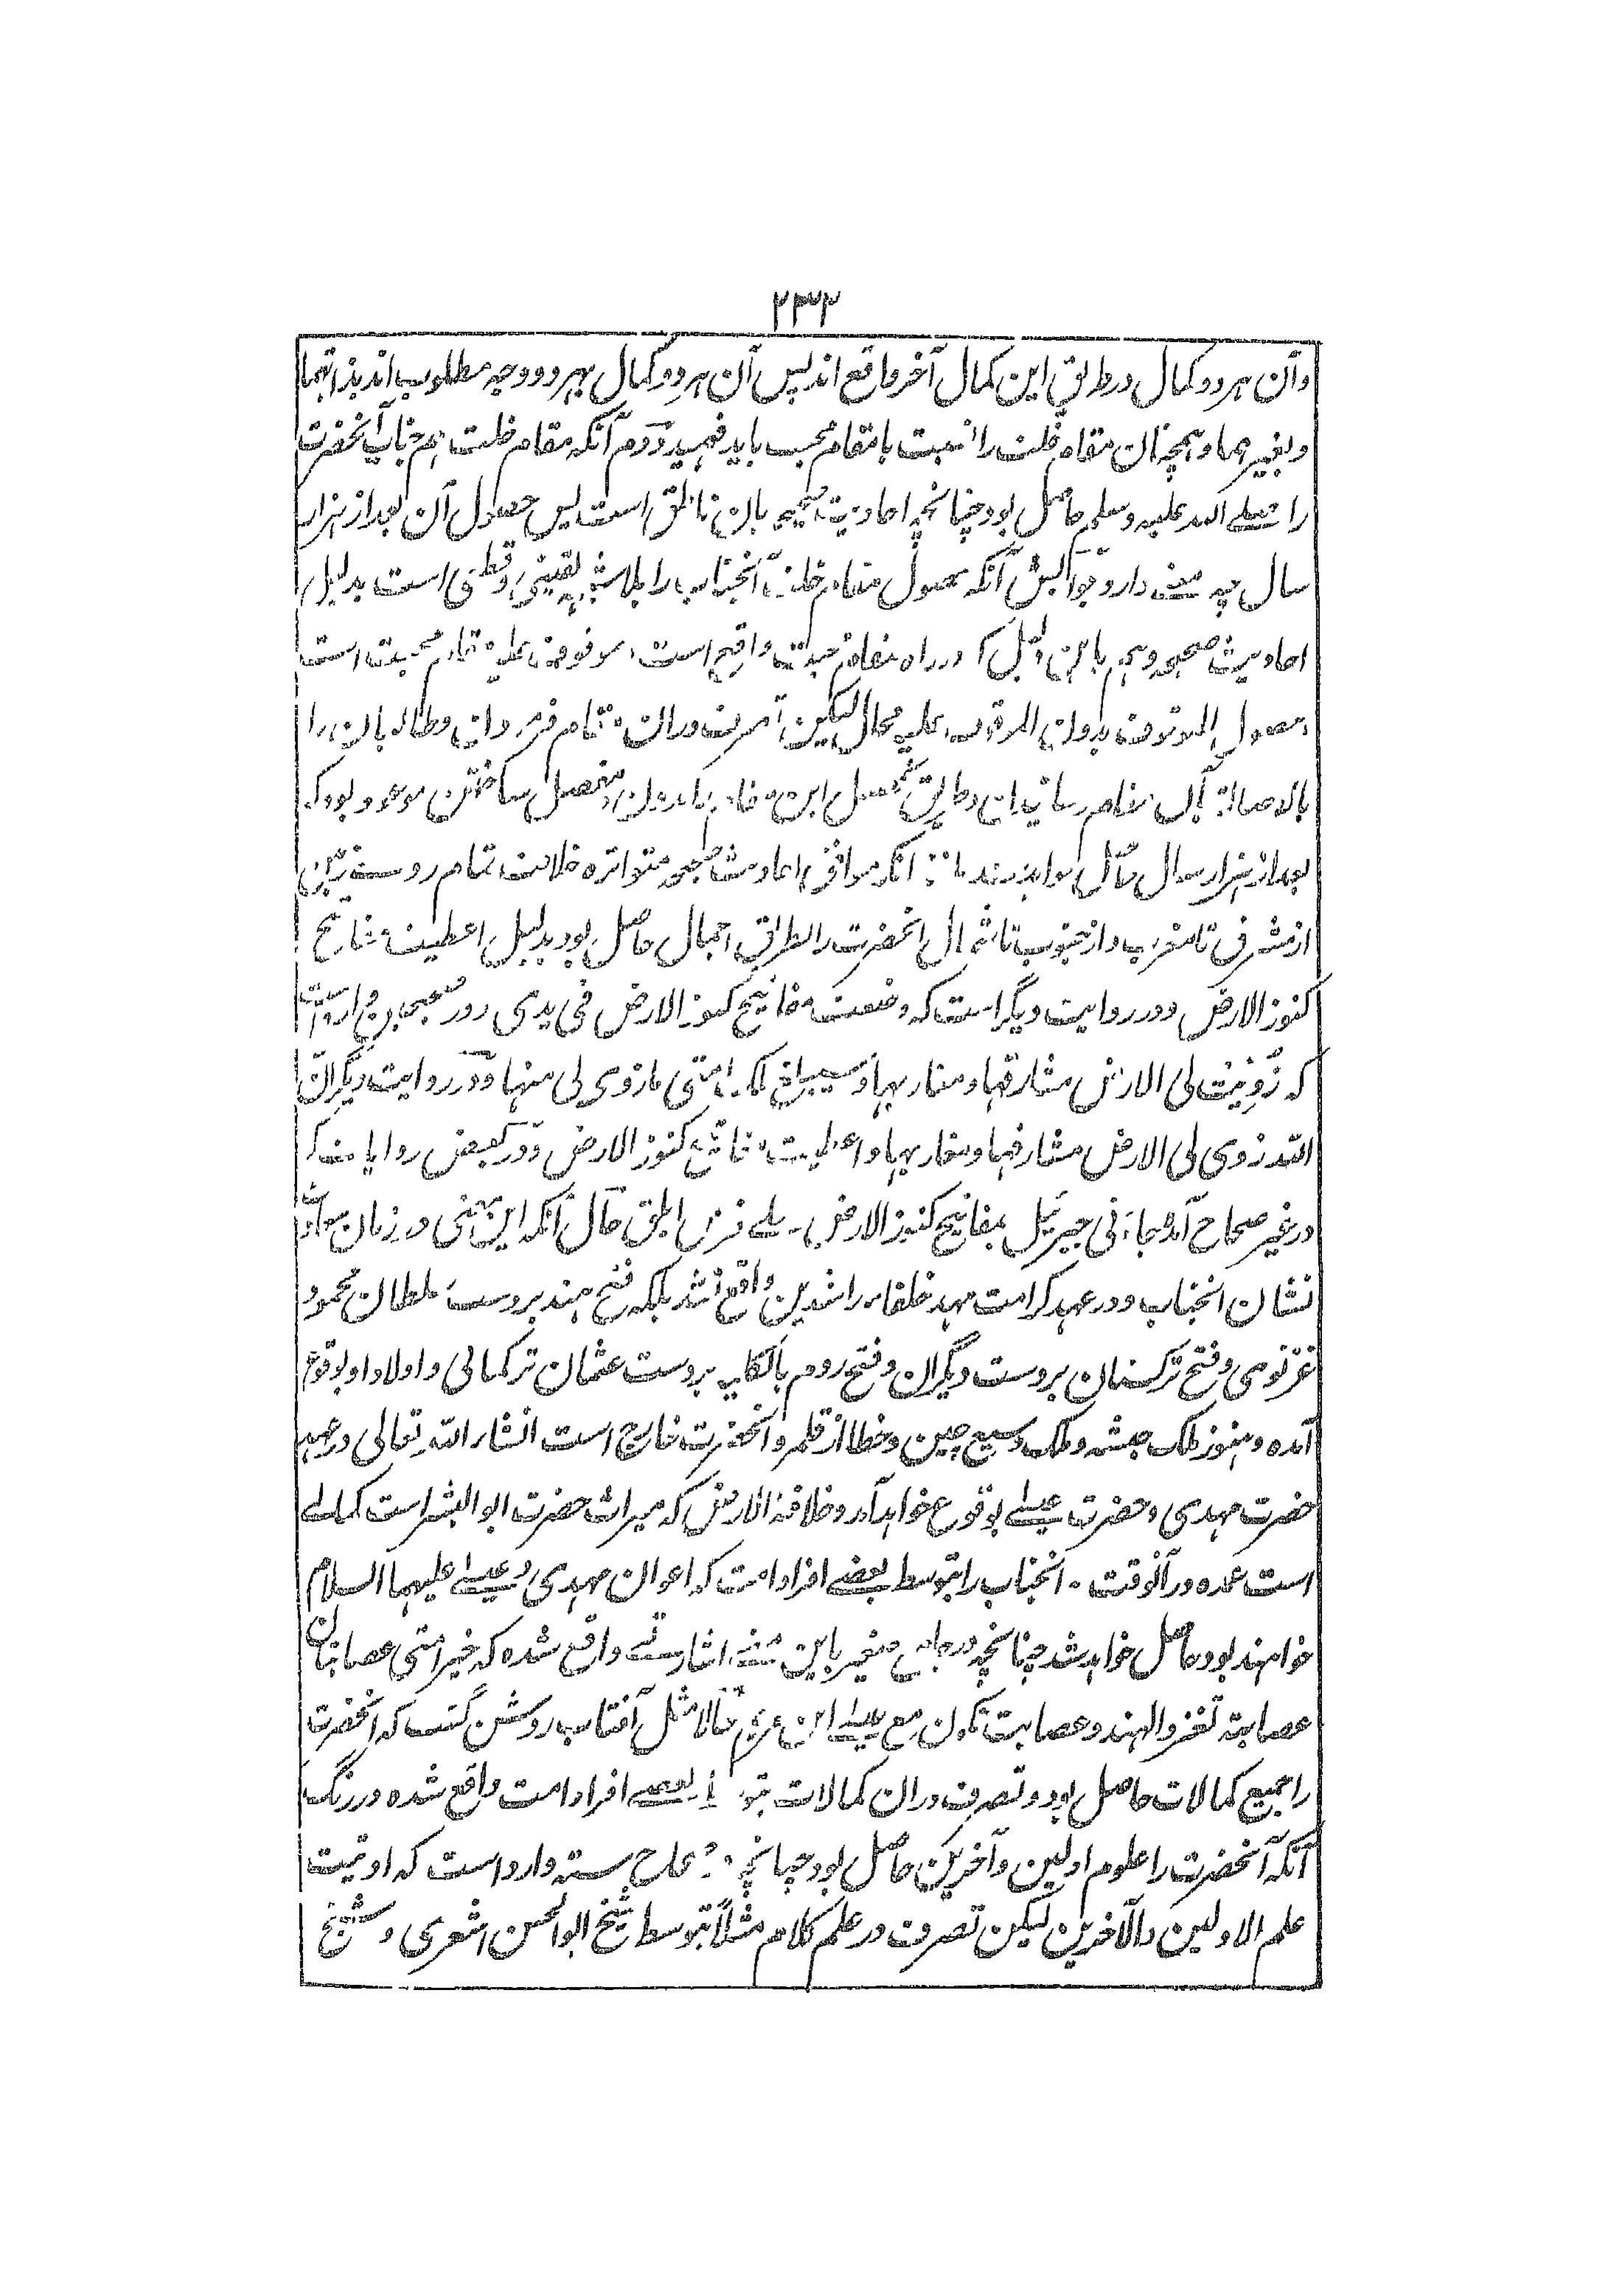 ۲۳۳
وآن هر دو کمال در طریق این کمال آخر واقع اند پس آن هر دو کمال بهر دو وجه مطلوب اند بذاتهما
و بغیرهما و همچنان مقام خلت را نسبت بامقام محب باید فهمید دوم آنکه مقام خلت هم جناب آنحضرت
را صلے الله علیه وسلم حاصل بود چنانچه احادیث صحیحه بآن ناطق است پس حصول آن بعد از هزار
سال چه معنے دارد جوابش آنکه حصول مقام خلت آنجناب را بلاشبه یقینی و قطعی است بدلیل
احادیث صحیحه و هم باین دلیل که در راه مقام محبت واقع است موقوف علیه مقام محبت است
حصول الموقوف بدون الموقوف علیه محال لیکن تصرف دران مقام فرمودن و طالبان را
بالاصالة بآن مقام رسانیدن و طریق تحصیل این مقام را مدون مفصل ساختن موعود بود که
بعد از هزار سال حاصل مانند آنکه موافق احادیث صحیحه متواتره خلافت تمام روے زمین
از مشرق تا مغرب و از جنوب تا شمال آنحضرت را بطریق اجمال حاصل بود بدلیل اعطیت مفاتیح
کنوز الارض و در روایت دیگر است که وضعت مفاتیح کنوز الارض فی یدی و در صحیحین وارد است
که زویت لی الارض مشارقها و مغاربها وسیبلغ ملک امتی ما زوی لی منها و در روایت دیگر ان
الله زوی لی الارض مشارقها و مغاربها واعطیت مفاتیح کنوز الارض و در بعض روایات که
در غیر صحاح آمده جاءنی جبرئیل بمفاتیح کنوز الارض - بلے فرس ابلق حال آنکه این معنی در زمان سعادت
نشان آنجناب و در عهد کرامت مهد خلفاء راشدین واقع نشد بلکه فتح هند بر دست سلطان محمود
غزنوی و فتح ترکستان بر دست دیگران و فتح روم بالکلیه بر دست عثمان ترکمانی و اولاد او بوقوع
آمده و هنوز ملک حبشه و ملک وسیع چین و خطا از قلمرو آنحضرت خارج است انشاء الله تعالی در عهد
حضرت مهدی و حضرت عیسے بوقوع خواهد آمد و خلافة الارض که میراث حضرت ابو البشر است کمالے
است عمده در آنوقت - آنجناب را بتوسط بعضے افراد امت که اعوان مهدی و عیسے علیهما السلام
خواهند بود حاصل خواهد شد چنانچه در جامع صغیر باین معنے اشارتے واقع شده که خیر امتی عصابتان
عصابته تغزو الهند و عصابت تکون مع عیسے ابن مریم حالا مثل آفتاب روشن گشت که آنحضرت
را جمیع کمالات حاصل بود و تصرف دران کمالات بتوسط بعضے افراد امت واقع شده در رنگ
آنکه آنحضرت را علوم اولین و آخرین حاصل بود چنانچه در صحاح سته وارد است که اوتیت
علم الاولین والآخرین لیکن تصرف در علم کلام مثلاً بتوسط شیخ ابو الحسن اشعری و شیخ